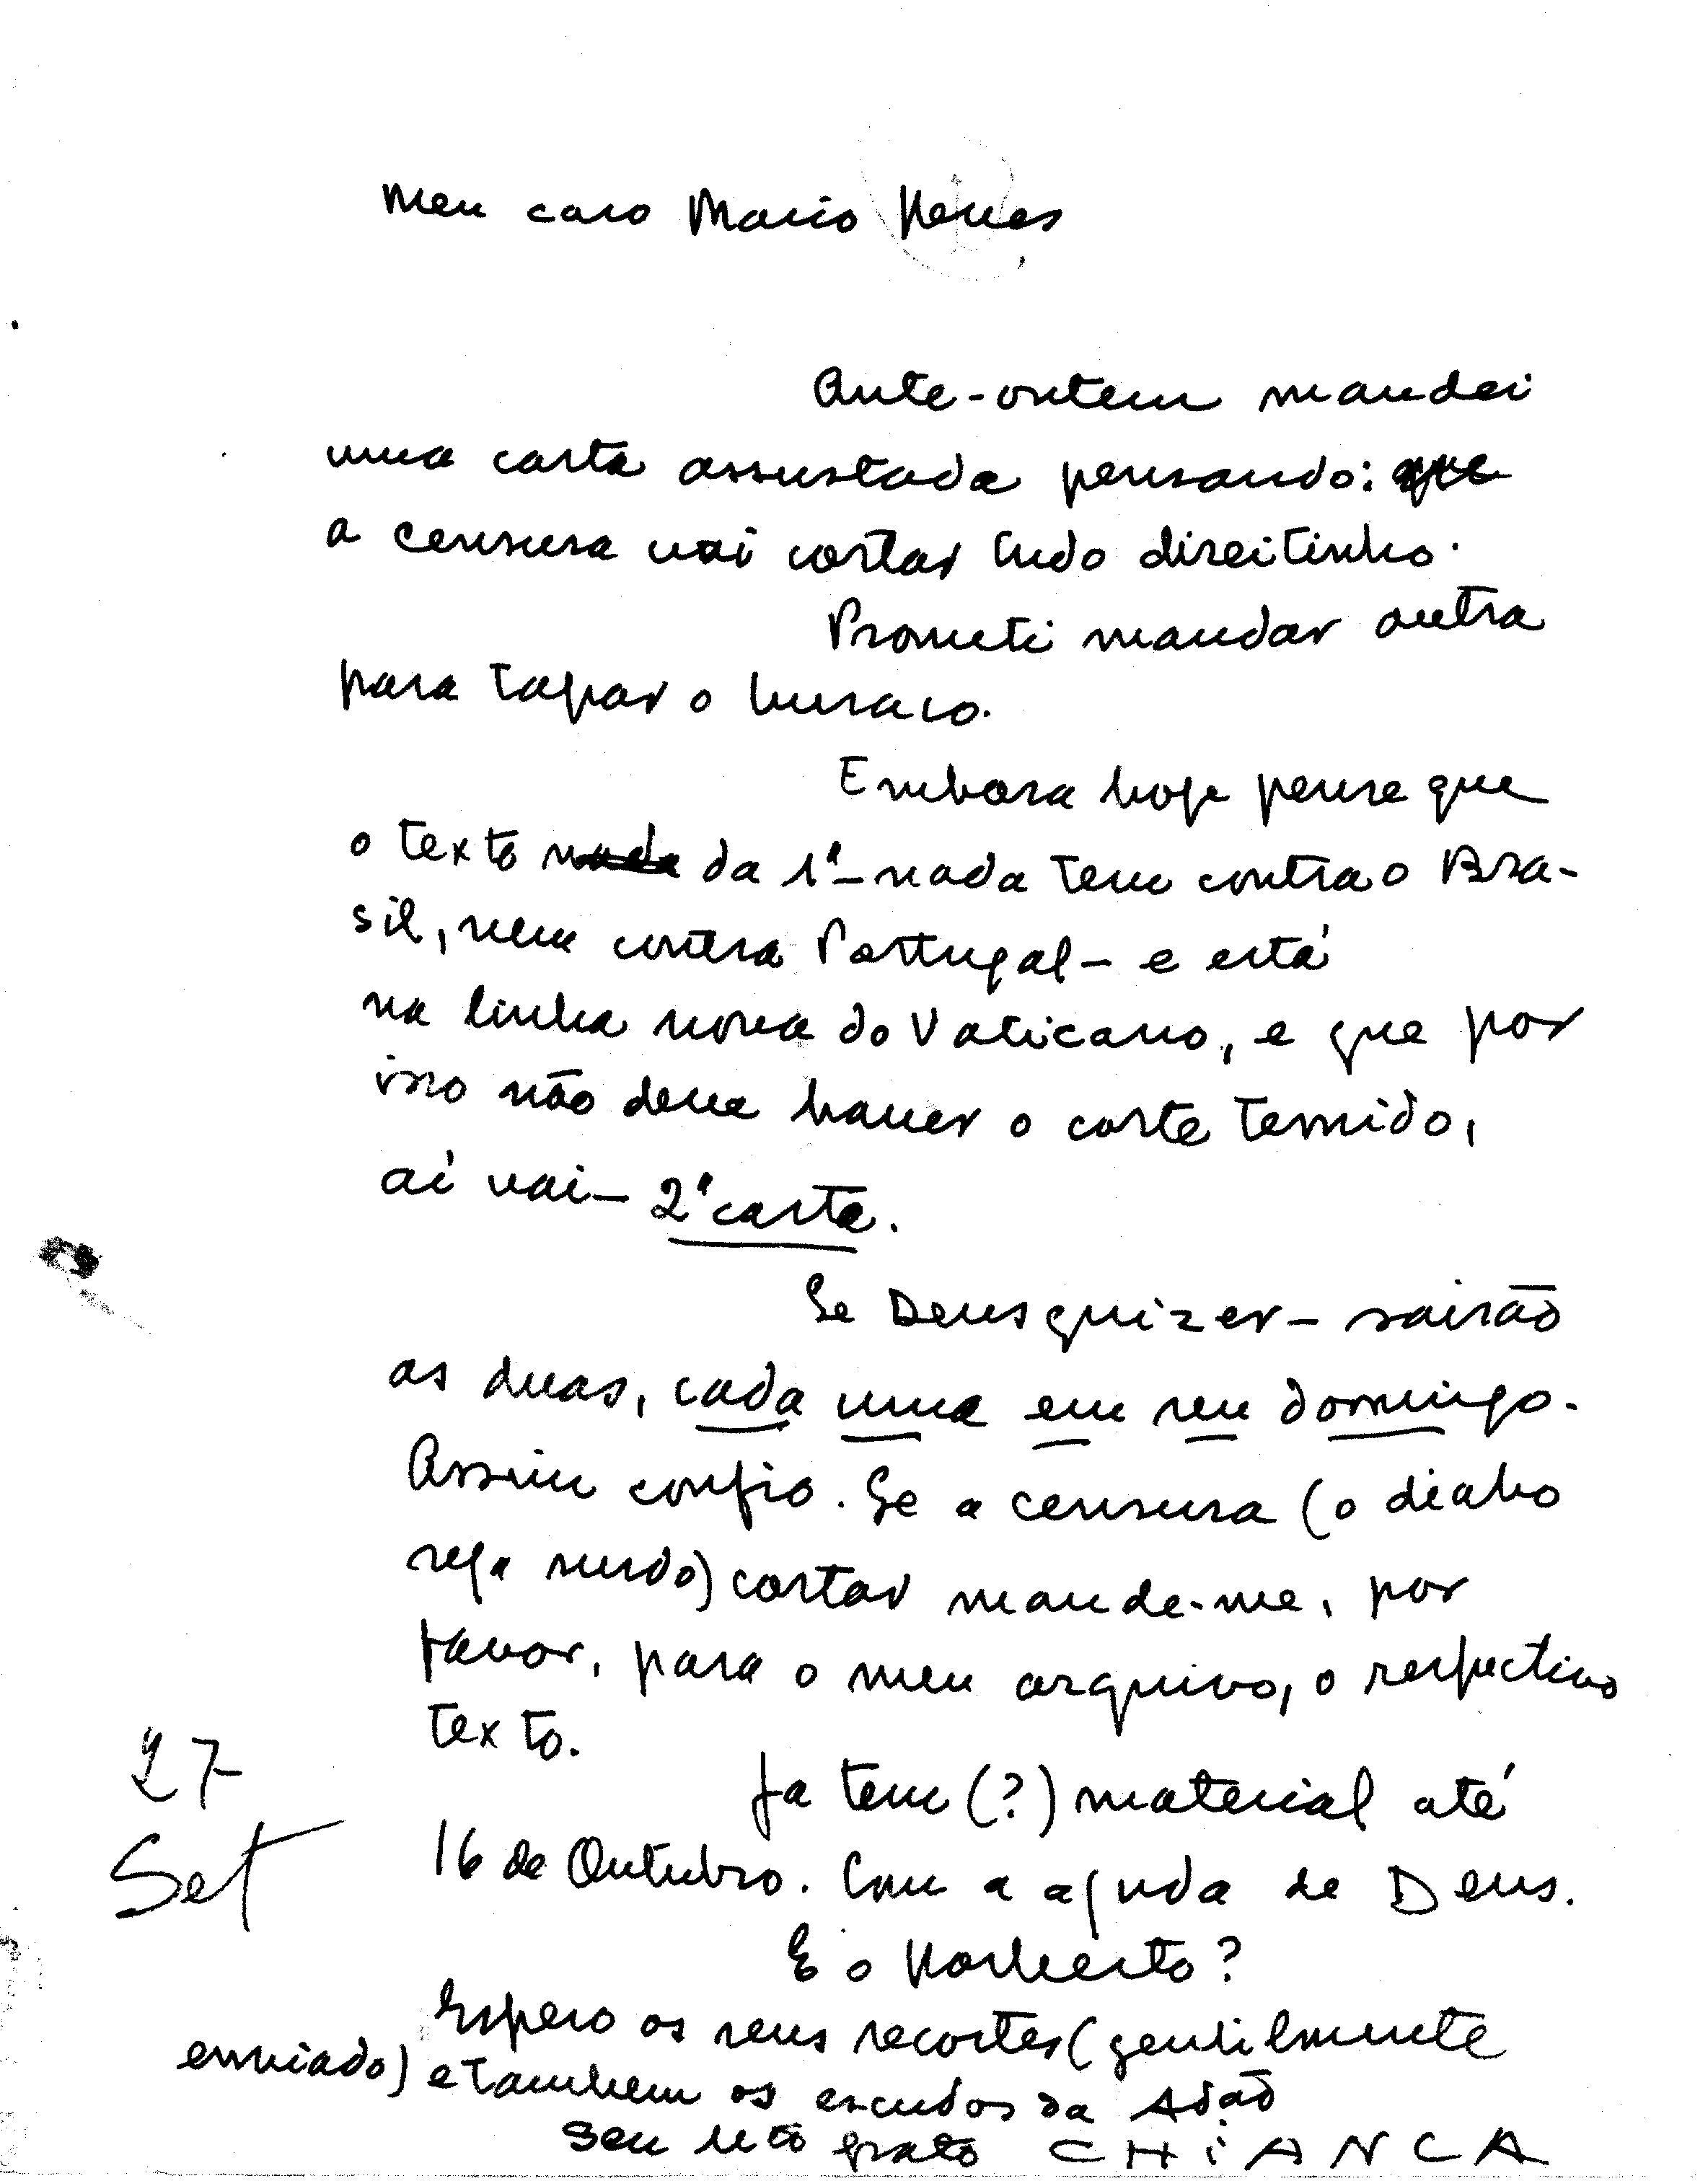 Meu caro Mario Neves
,
Ante-ontem mandei
uma carta assustada pensando: que
a censura vai cortar tudo direitinho.
Prometi mandar outra
para tapar o buraco.
Embora hoje pense que
o texto nada da 1ª - nada tem contra o Bra-
sil, nem contra Portugal - e está
na linha nova do Vaticano, e que por
isso não deve haver o corte temido,
aí vai - 2ª carta.
Se Deus quizer - sairão
as duas, cada uma em seu domingo.
Assim confio. Se a censura (o diabo
seja surdo) cortar mande-me, por
favor, para o meu arquivo, o respectivo
texto.
Ja tem (?) material até
16 de Outubro. Com a ajuda de Deus.
E o Norberto?
27
Set
Espero os seus recortes (gentilmente
enviado) e tambem os escudos da Adão
Seu grato CHiANCA